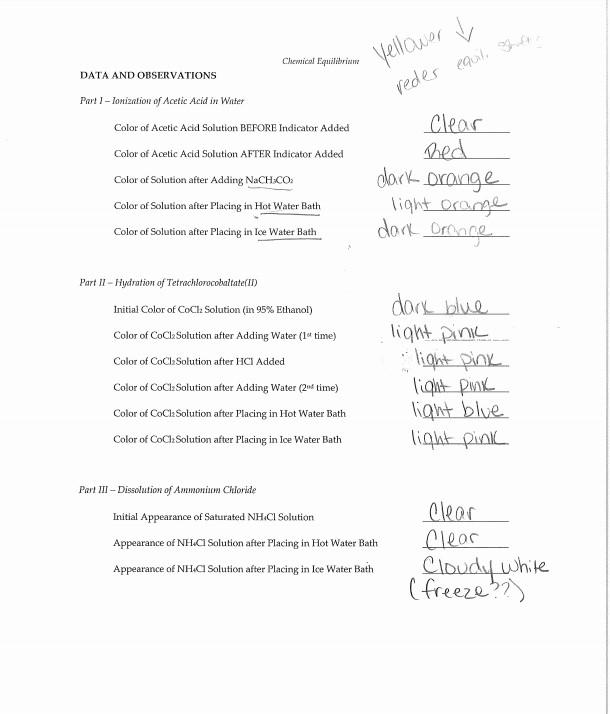 yellower ↓
Chemical Equilibrium
reder equil.
DATA AND OBSERVATIONS
Part I – Ionization of Acetic Acid in Water
Color of Acetic Acid Solution BEFORE Indicator Added Clear
Color of Acetic Acid Solution AFTER Indicator Added Red
Color of Solution after Adding NaCH₃CO₂ dark orange
Color of Solution after Placing in Hot Water Bath light orange
Color of Solution after Placing in Ice Water Bath dark orange
Part II – Hydration of Tetrachlorocobaltate(II)
Initial Color of CoCl₂ Solution (in 95% Ethanol) dark blue
Color of CoCl₂ Solution after Adding Water (1st time) light pink
Color of CoCl₂ Solution after HCl Added light pink
Color of CoCl₂ Solution after Adding Water (2nd time) light pink
Color of CoCl₂ Solution after Placing in Hot Water Bath light blue
Color of CoCl₂ Solution after Placing in Ice Water Bath light pink
Part III – Dissolution of Ammonium Chloride
Initial Appearance of Saturated NH₄Cl Solution Clear
Appearance of NH₄Cl Solution after Placing in Hot Water Bath Clear
Appearance of NH₄Cl Solution after Placing in Ice Water Bath Cloudy white
(freeze??)